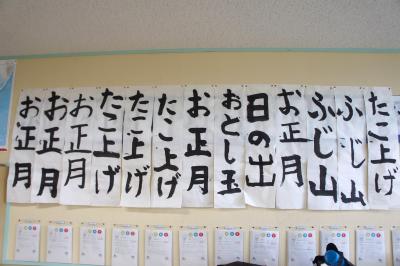 たこ上げ
ふじ山
ふじ山
お正月
日の出
おとし玉
お正月
たこ上げ
たこ上げ
たこ上げ
お正月
お正月
お正月